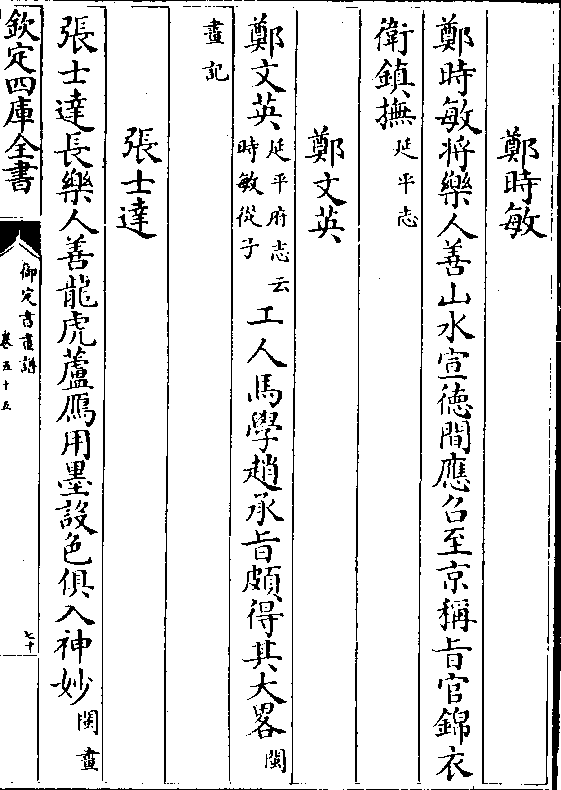 鄭時敏
鄭時敏將樂人善山水宣徳間應召至京稱旨官錦衣
衛鎮撫延平志
鄭文英
鄭文英延平府志云時敏從子工人馬學趙承旨頗得其大畧閩
畫記
張士達
張士達長樂人善龍虎蘆鴈用墨設色俱入神妙閩畫
欽定四庫全書
御定書畫譜
卷五十五
七十